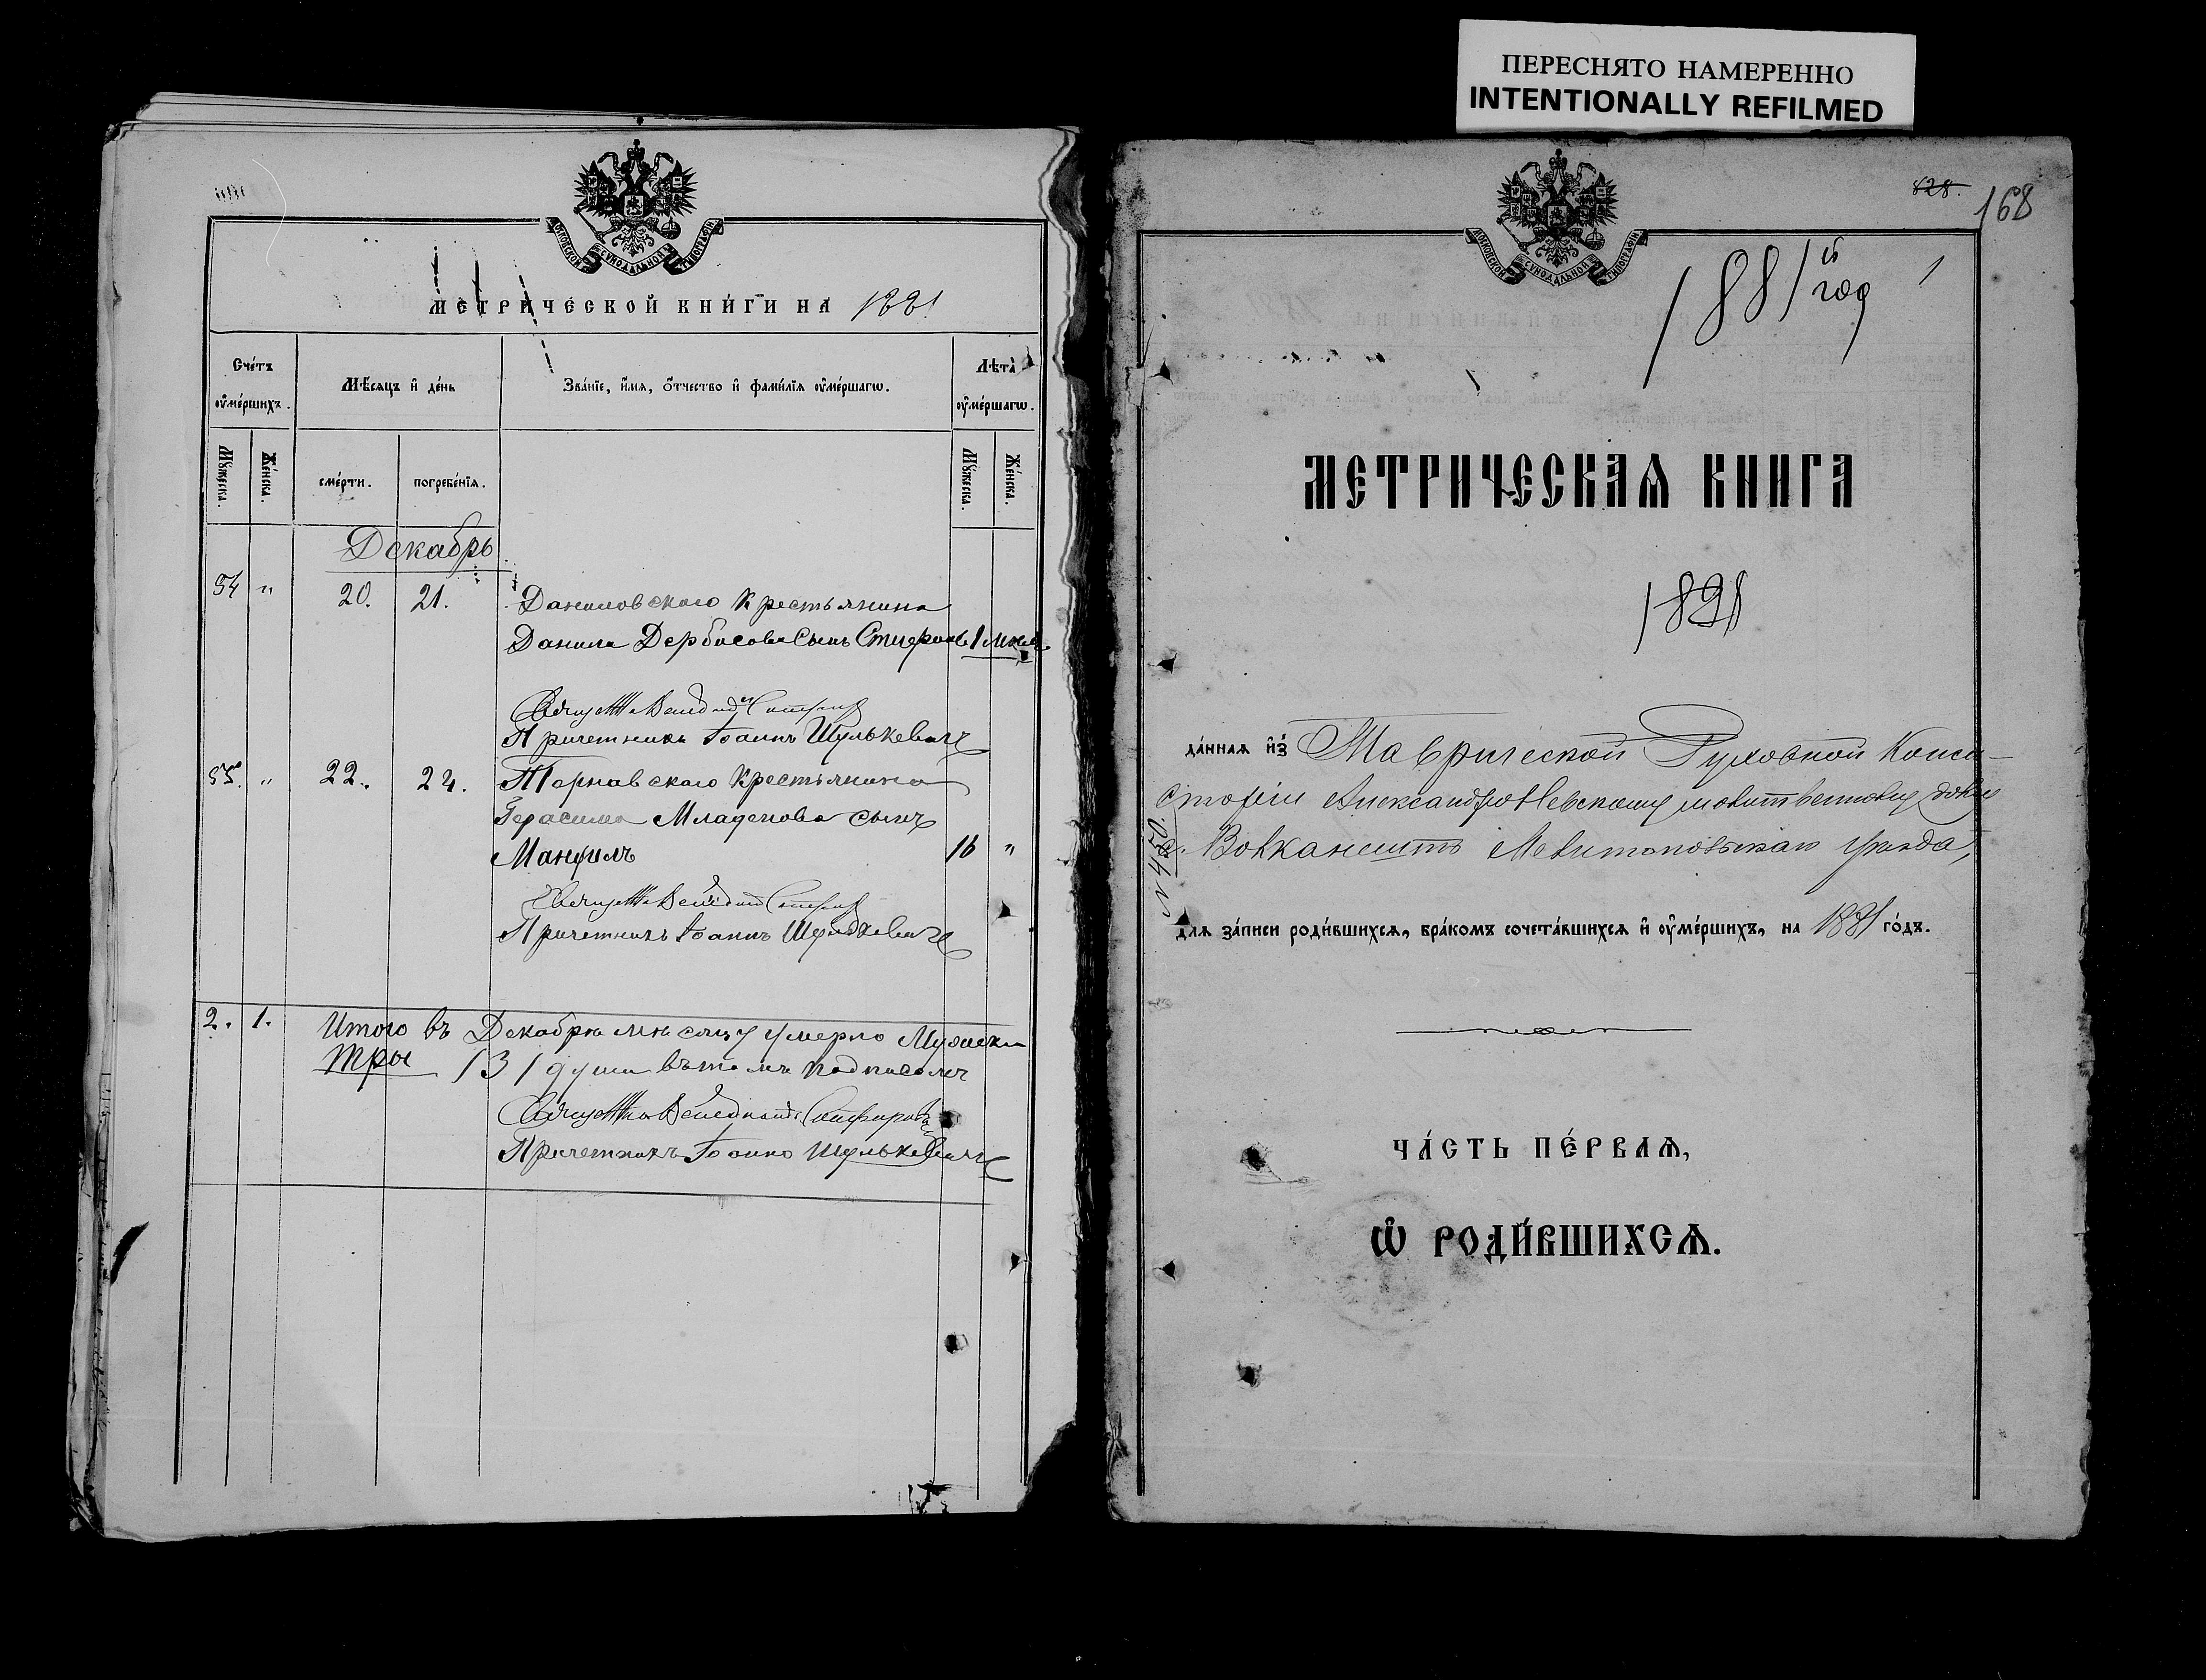 ПЕРЕСНЯТО НАМЕРЕННО
INTENTIONALLY REFILMED
МОСКОВСКОЙ СѴНОДАЛЬНОЙ ТИПОГРАФІИ
МЕТРИ́ЧЕСКОЙ КНИ́ГИ НА 1881
Сче́тъ ᲂу҆ме́ршихъ.
Мѣ́сяцъ и҆ де́нь
Зва́нїе, и҆́мя, ѻ҆́тчество и҆ фами́лїя ᲂу҆ме́ршагѡ.
Лѣ́та ᲂу҆ме́ршагѡ.
Мꙋ́жеска.
Же́нска.
сме́рти.
погребе́нїя.
Мꙋ́жеска.
Же́нска.
Декабрь
54 " 20. 21. Даниловского Крестьянина
Данила Дербасова Сынъ 1
Причетникъ Іоаннъ Шулькевичъ
55. " 22. 24. Тарнавского Крестьянина
Герасима Младенова сынъ
Мануилъ 16 "
Причетникъ Іоаннъ Шулькевичъ
2. 1. Итого въ Декабрѣ мѣсяцу умерло
тры /3/ души въ томъ подписомъ
Причетникъ Іоаннъ Шулькевичъ
828.
168
МОСКОВСКОЙ СѴНОДАЛЬНОЙ ТИПОГРАФІИ
1881й год
1
МЕТРИЧЕСКАЯ КНИГА
1881
да́нная и҆зъ Таврической Духовной Конси-
сторіи Александро Невскому молитвенному дому
с. Мелитопольскаго уѣзда,
для за́писи роди́вшихся, бра́комъ сочета́вшихся и҆ ᲂу҆ме́ршихъ, на 1881 го́дъ.
ЧА́СТЬ ПЕ́РВАЯ,
Ѡ҆ РОДИ́ВШИХСЯ.